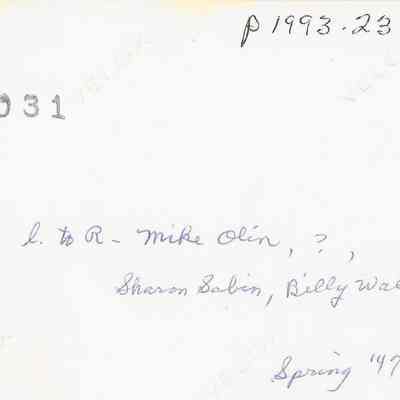 p 1993.23
031
L. to R - Mike Olin, ?,
Sharon Sabin, Billy Wal
Spring '47